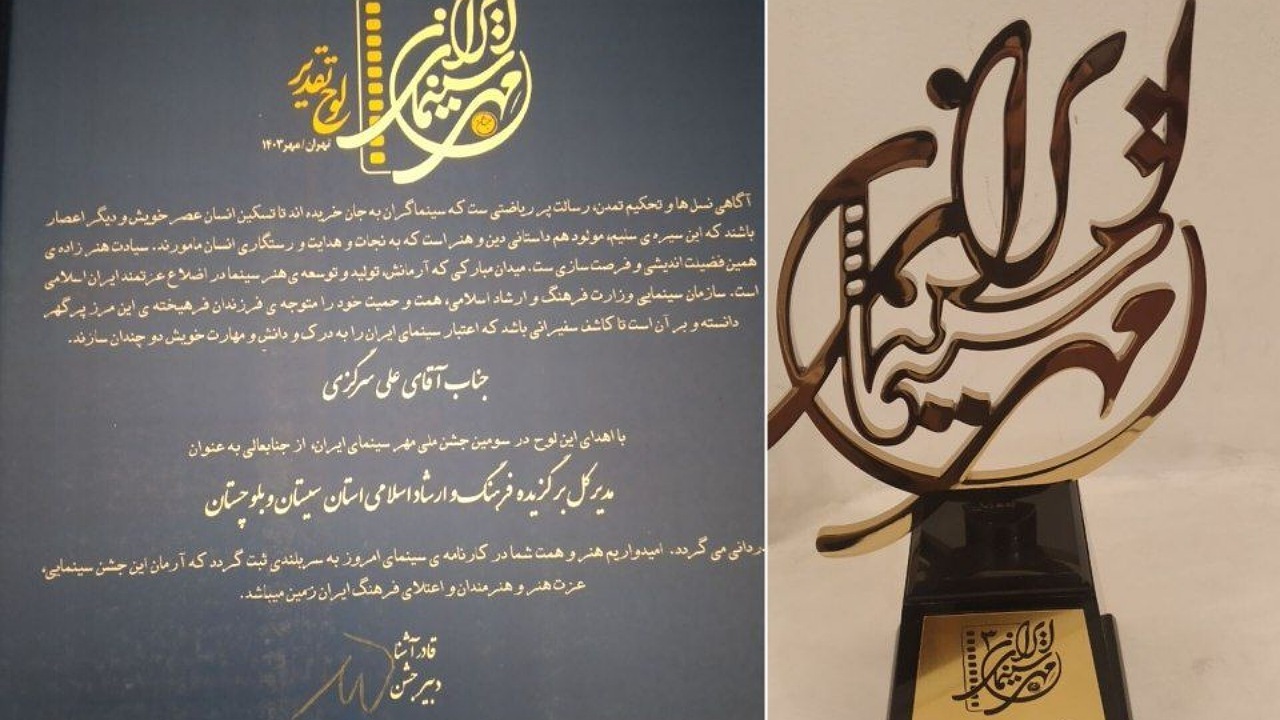 مهر سینمای ایران
لوح تقدیر
تهران/مهر۱۴۰۳
آگاهی نسل ها و تحکیم تمدن، رسالت پر ریاضتی ست که سینماگران به جان خریده اند تا تسکین انسان عصر خویش و دیگر اعصار
باشند که این سیره ی سلیم، مولود هم داستانی دین و هنر است که به نجات و هدایت و رستگاری انسان مامورند. سیادت هنر زاده ی
همین فضیلت اندیشی و فرصت سازی ست. میدان مبارکی که آرمانش، تولید و توسعه ی هنر سینما در اضلاع عزتمند ایران اسلامی
است. سازمان سینمایی وزارت فرهنگ و ارشاد اسلامی، همت و حمیت خود را متوجه ی فرزندان فرهیخته ی این مرز پرگهر
دانسته و بر آن است تا کاشف سفیرانی باشد که اعتبار سینمای ایران را به درک و دانش و مهارت خویش دو چندان سازند.
جناب آقای علی سرگزی
با اهدای این لوح در سومین جشن ملی مهر سینمای ایران، از جنابعالی به عنوان
مدیرکل برگزیده فرهنگ و ارشاد اسلامی استان سیستان و بلوچستان
ردانی می گردد. امیدواریم هنر و همت شما در کارنامه ی سینمای امروز به سربلندی ثبت گردد که آرمان این جشن سینمایی،
عزت هنر و هنرمندان و اعتلای فرهنگ ایران زمین میباشد.
قادر آشنا
دبیر جشن
مهر سینمای ایران
مهر سینمای ایران ۳